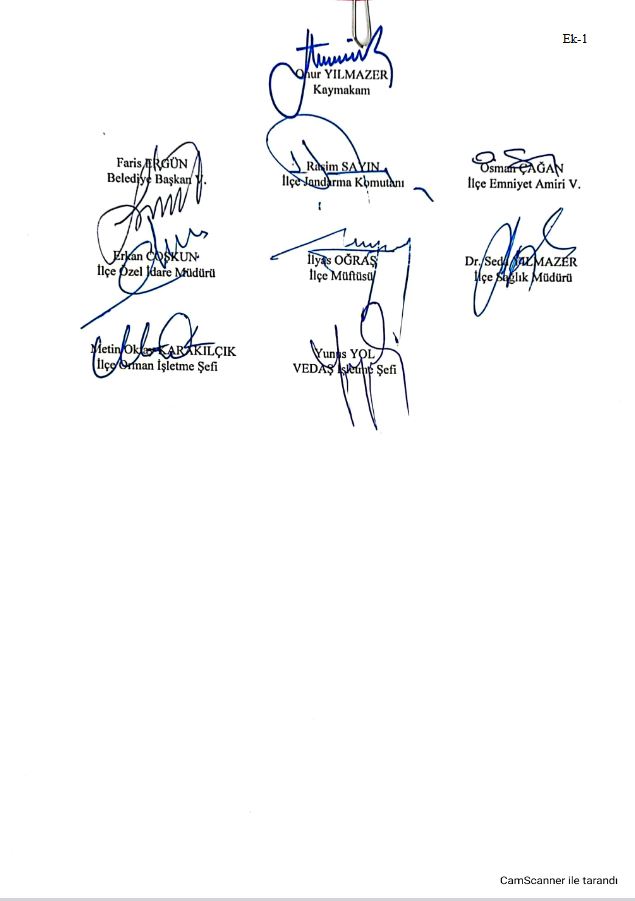 Ek-1
Onur YILMAZER
Kaymakam
Faris ERGÜN
Belediye Başkan V.
Rasim SAYIN
İlçe Jandarma Komutanı
Osman ÇAĞAN
İlçe Emniyet Amiri V.
Erkan COŞKUN
İlçe Özel İdare Müdürü
İlyas OĞRAŞ
İlçe Müftüsü
Dr. Seda YILMAZER
İlçe Sağlık Müdürü
Metin KARAKILÇIK
İlçe Orman İşletme Şefi
Yunus YOL
VEDAŞ İşletme Şefi
CamScanner ile tarandı